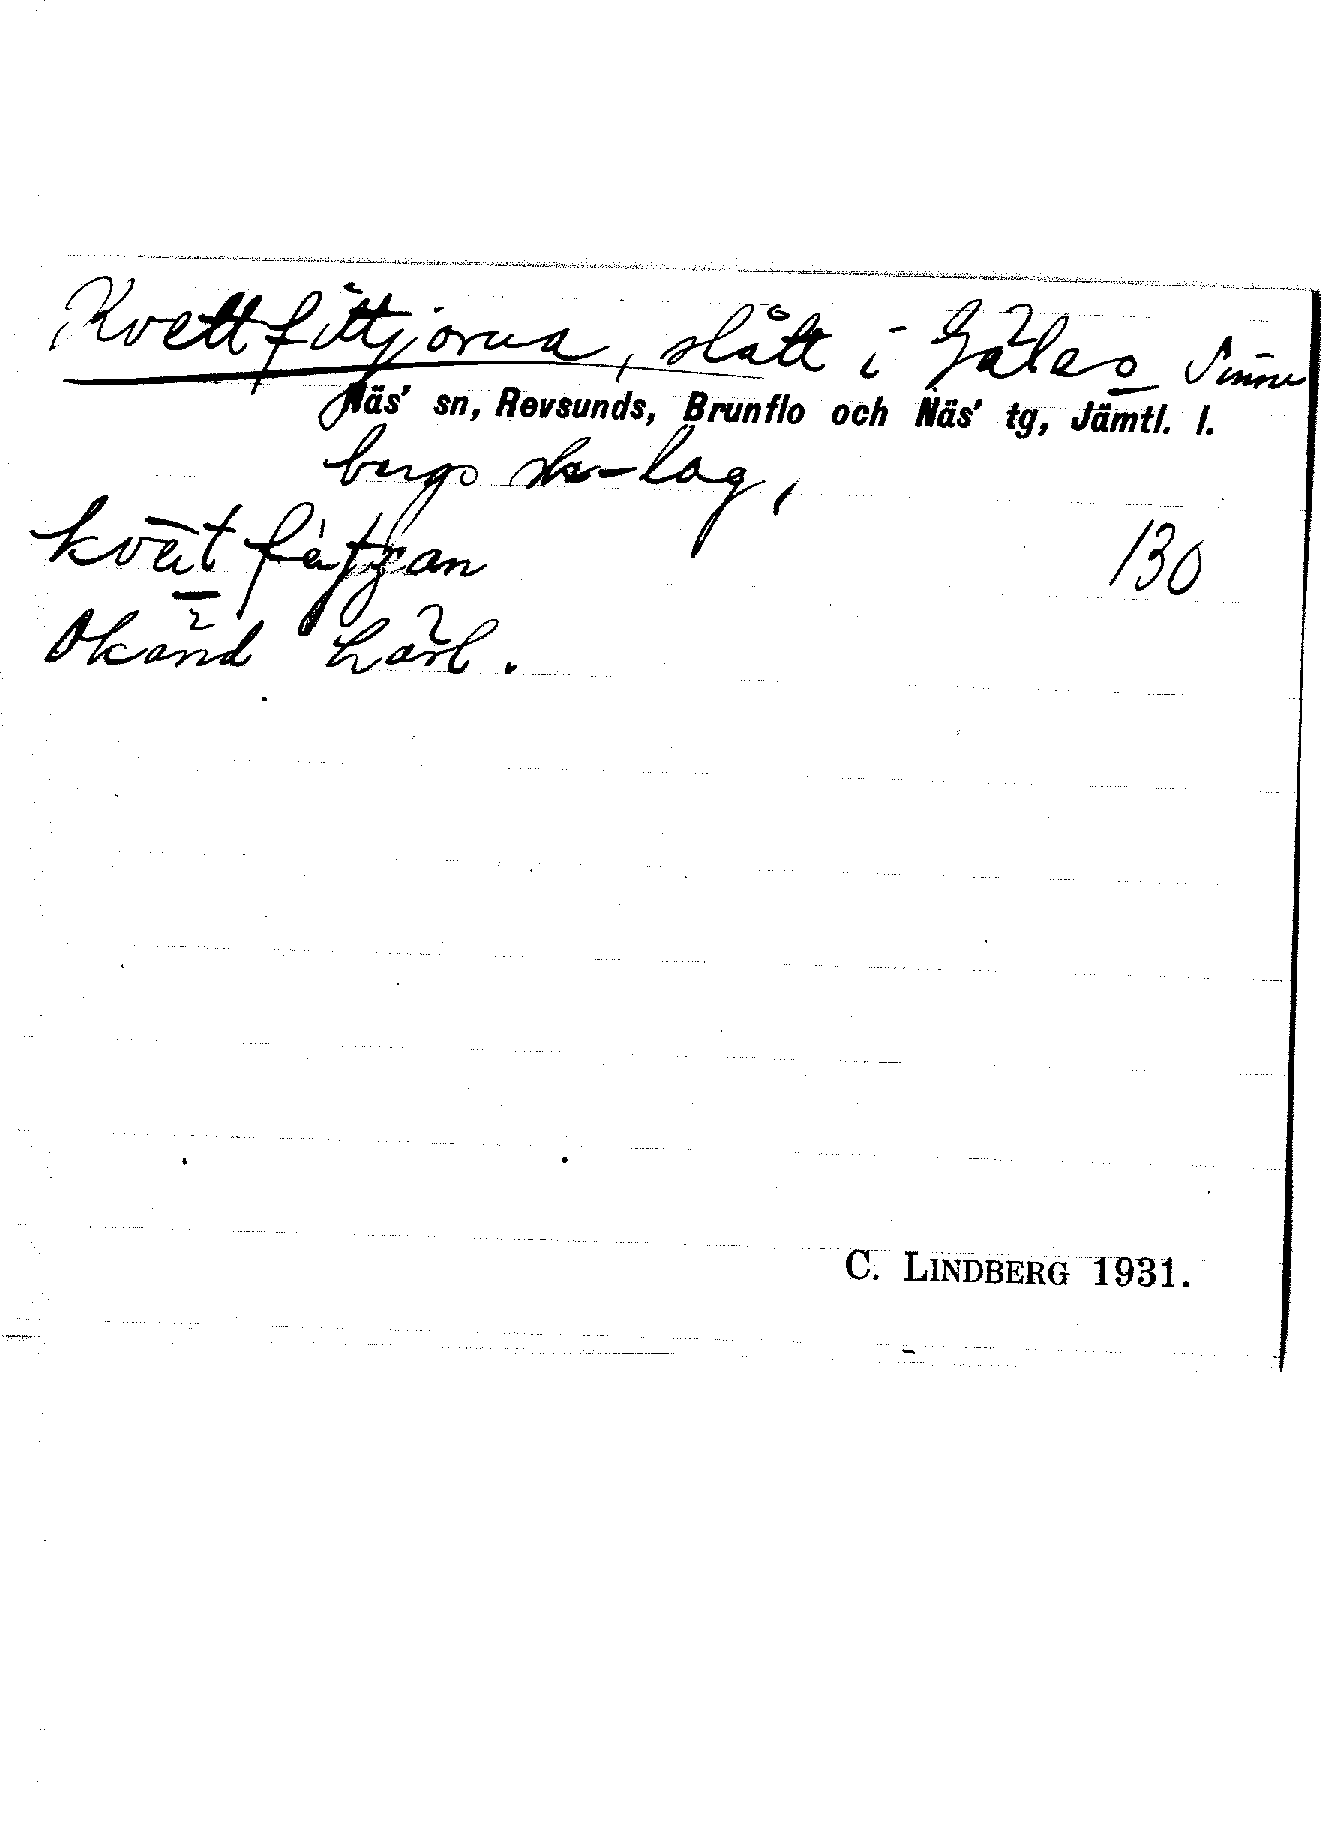 Kvettfittjorna, slått i Gåles Sunne
Näs' sn, Revsunds, Brunflo och Näs' tg, Jämtl. l.
bergs sk-lag,
130
Okänd härl.
C. LINDBERG 1931.